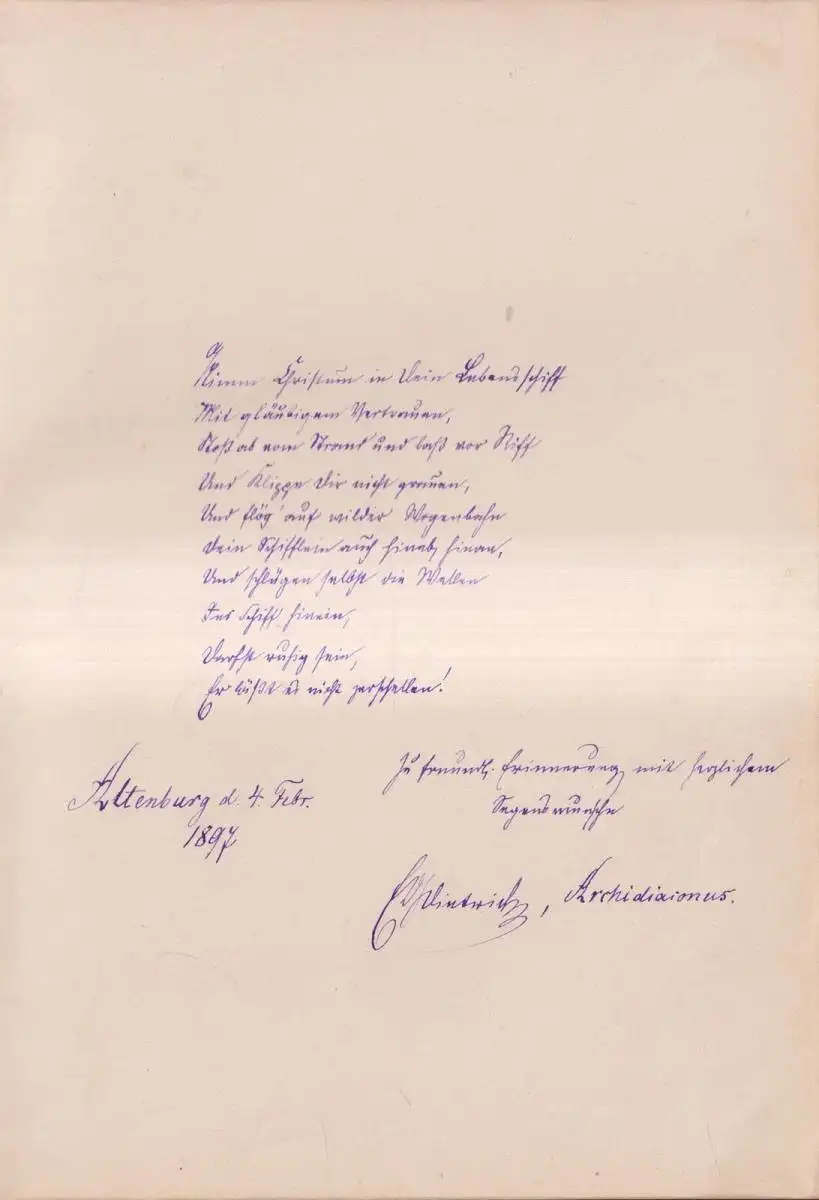 Nimm Christum in Dein Lebensschiff
Mit gläubigem Vertrauen,
Stoß ab vom Strand und laß vor Riff
Und Klippe Dir nicht grauen,
Und flög' auf wilder Wogenbahn
Dein Schifflein auch hinab, hinan,
Und schlügen selbst die Wellen
Ins Schiff hinein,
Darfst ruhig sein,
Er läßt es nicht zerschellen!
Zu freundl. Erinnerung mit herzlichem
Segenswunsche
Altenburg d. 4. Febr.
1897
Dietrich, Archidiaconus.